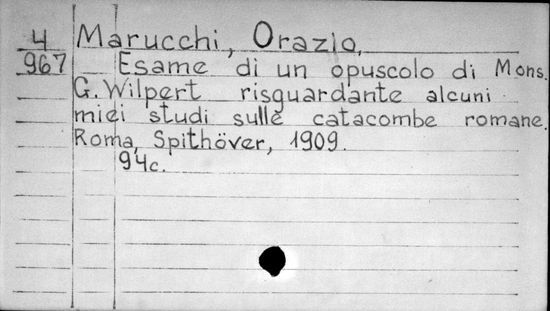 4 Marucchi, Orazio.
967 Esame di un opuscolo di Mons.
G. Wilpert risguardante alcuni
miei studi sulle catacombe romane.
Roma, Spithöver, 1909.
94c.